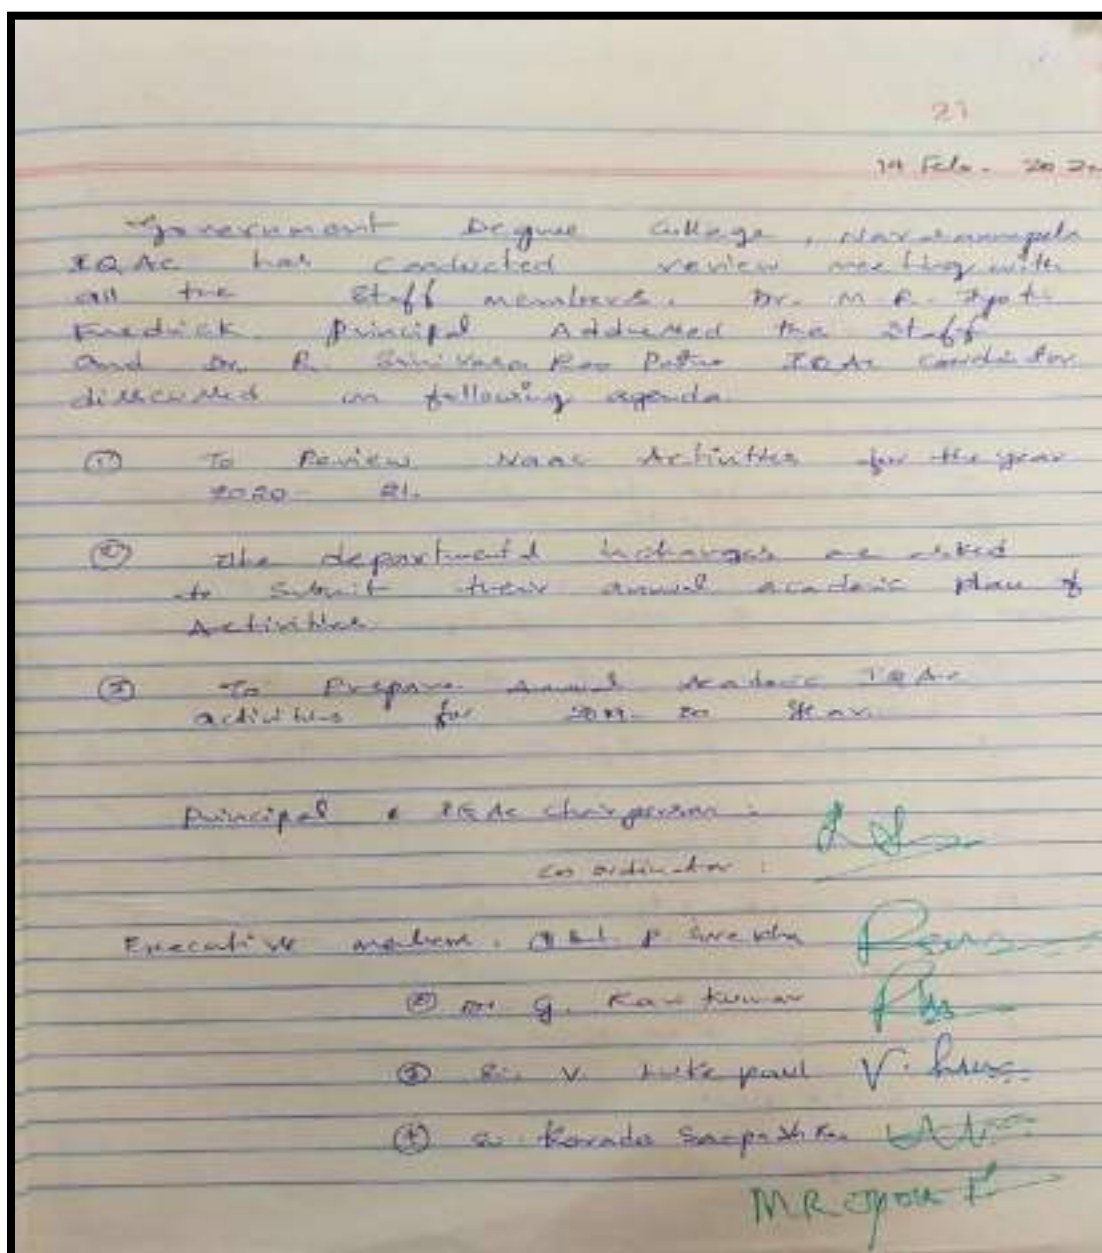 27
19 Feb. 202
Government Degree College,
IQAC has Conducted review meeting with
all the Staff members. Dr. M. R. Jyothi
Fredrick Principal Addressed the staff
and Dr. R. Srinivasa Rao Patro IQAC coordinator
discussed on following agenda.
① To Review Naac Activities for the year
2020- 21.
② The department incharges are asked
to Submit their annual academic plan of
Activities.
③ To Prepare Annual Academic IQAC
activities for 2019-20 year.
Principal & IQAC Chairperson :
coordinator :
Executive members. ① P
② Dr. G. Kumar
③ Sri. V. Luke paul V. Luke
④ Sri Korada
M.R. Jyothi F